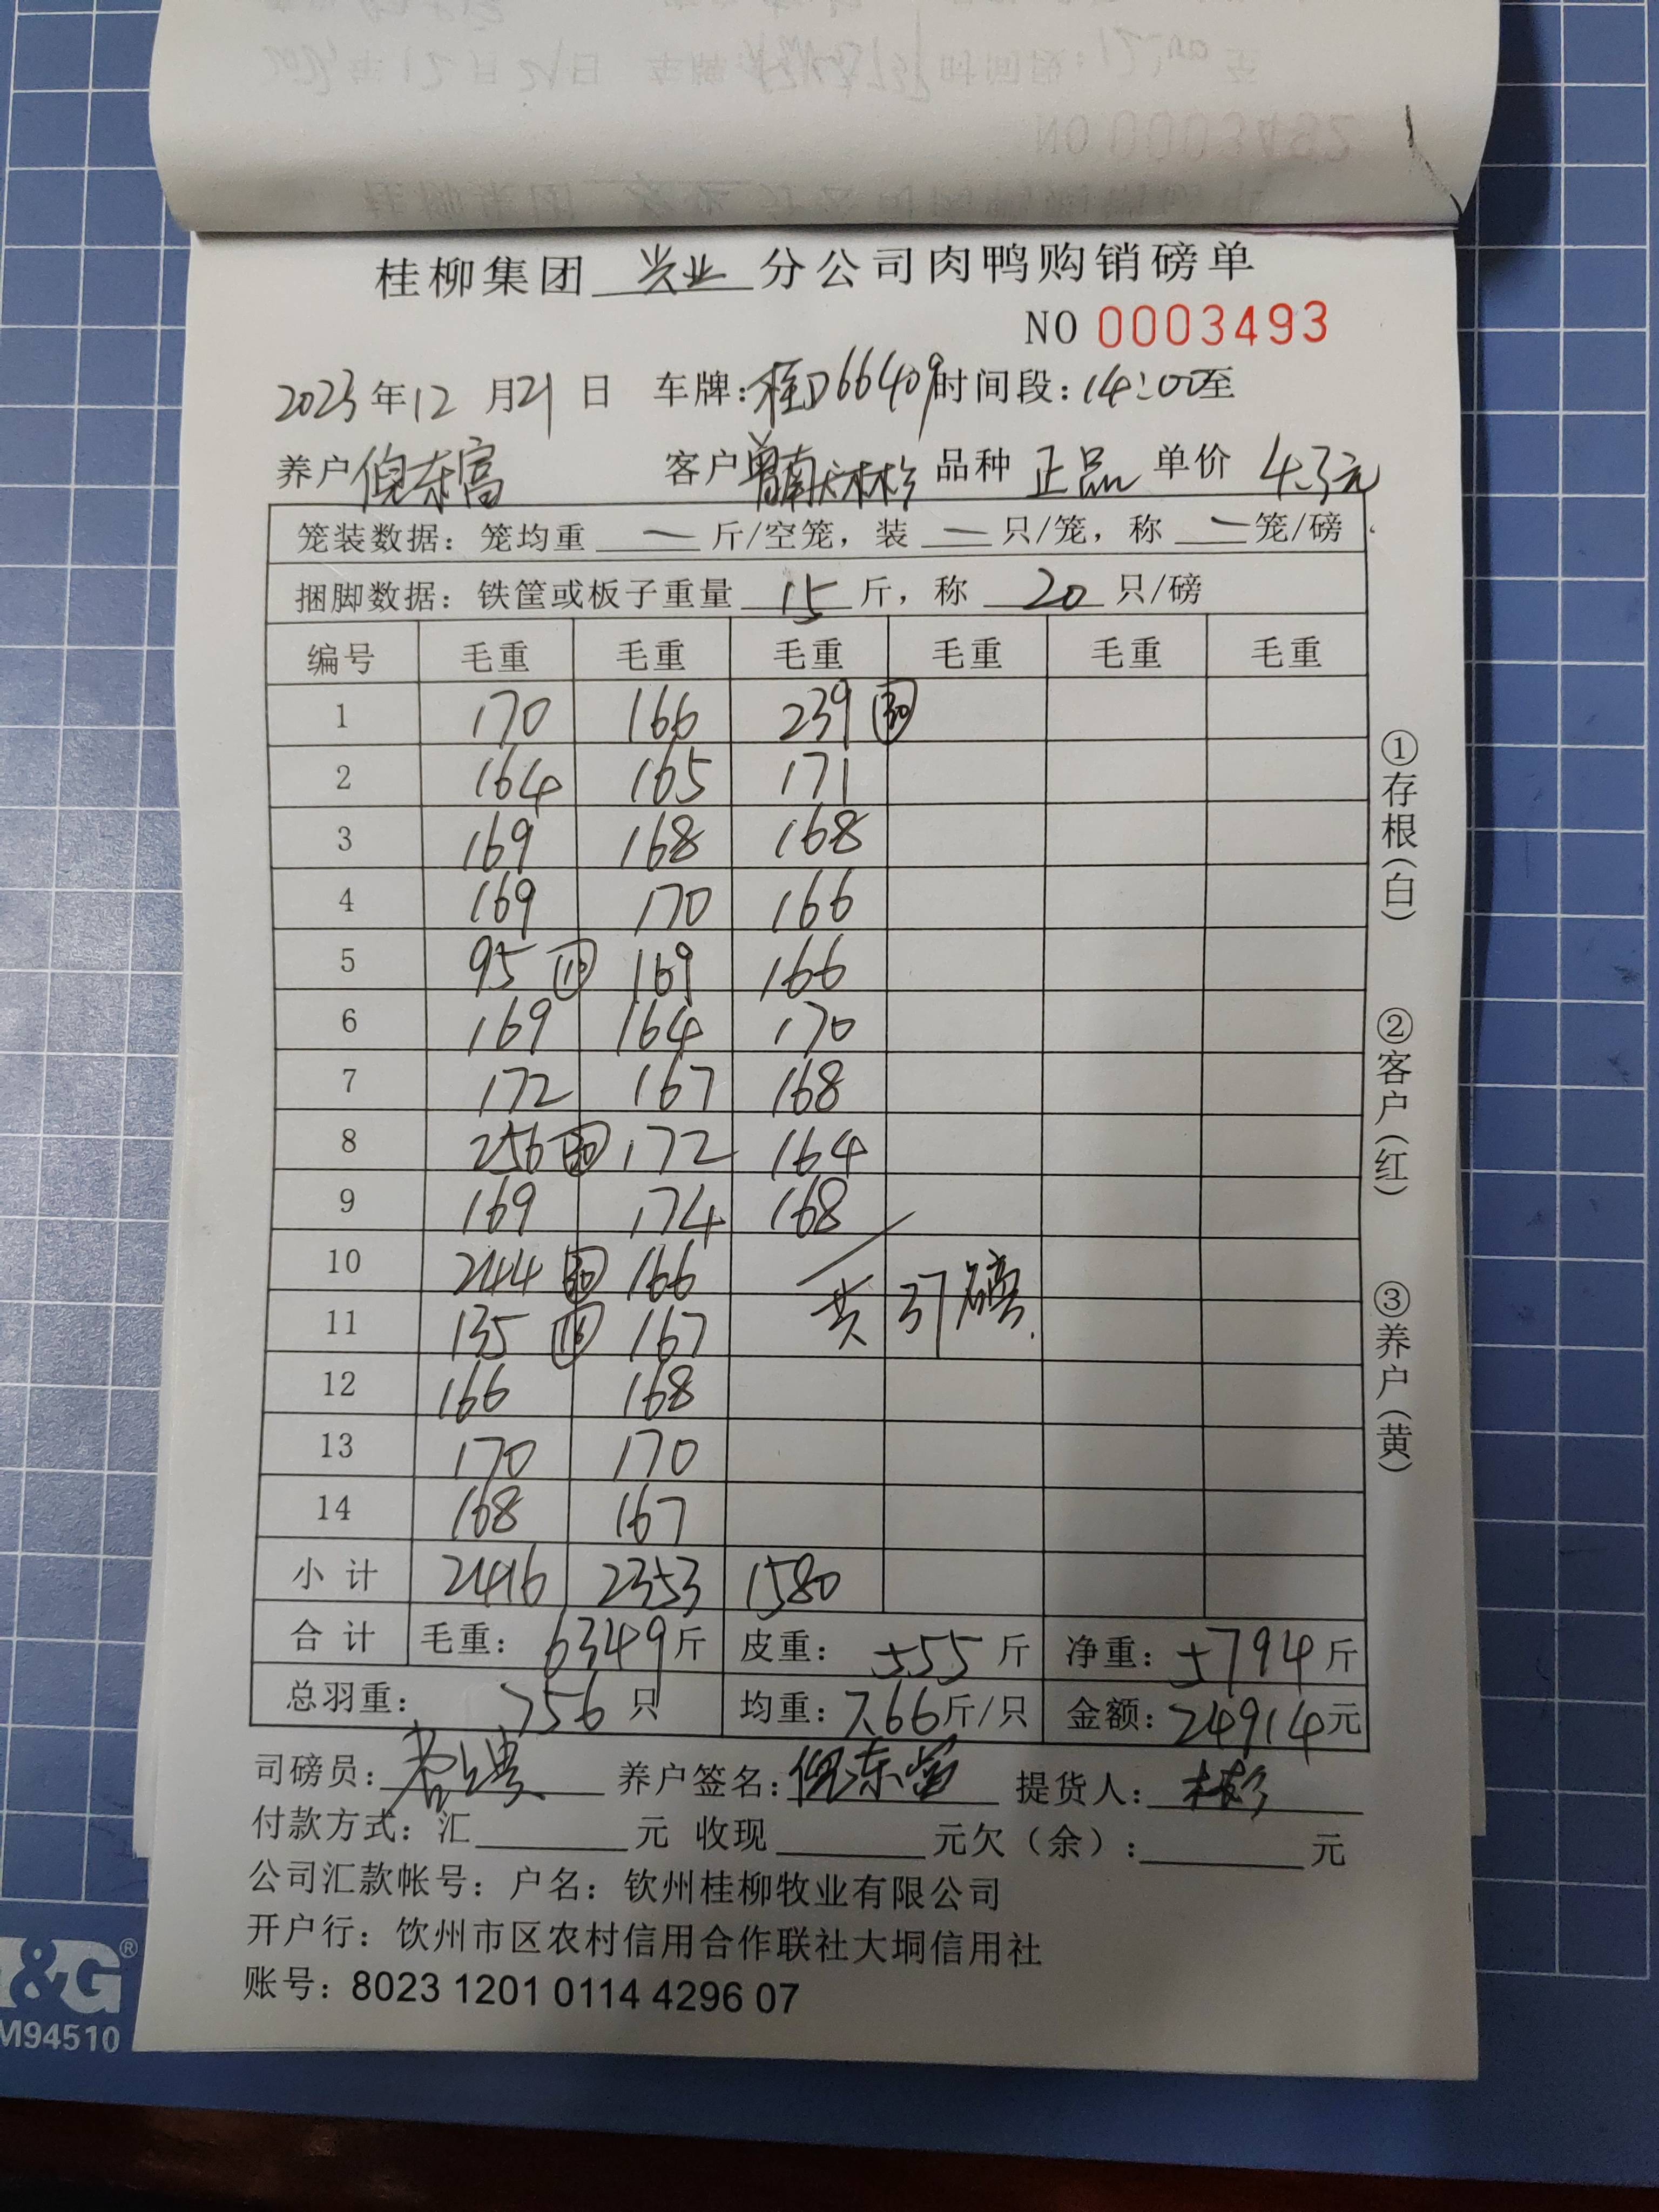 桂柳集团 兴业 分公司肉鸭购销磅单
NO 0003493
2023年12月21日 车牌:桂D66409 时间段:14:00至
养户 倪东富 客户 品种 正品 单价 4.3元
笼装数据:笼均重 一 斤/空笼,装 一 只/笼,称 一 笼/磅
捆脚数据:铁筐或板子重量 15 斤,称 20 只/磅
编号 毛重 毛重 毛重 毛重 毛重 毛重
1 170 166 239 ㉚
2 164 165 171
3 169 168 168
4 169 170 166
5 95 ⑩ 169 166
6 169 164 170
7 172 167 168
8 256 ㉚ 172 164
9 169 174 168
10 244 ㉚ 166
11 135 ⑯ 167 共 37磅
12 166 168
13 170 170
14 168 167
小计 2416 2353 1580
合计 毛重:6349斤 皮重:555斤 净重:5794斤
总羽重:756只 均重:7.66斤/只 金额:24914元
司磅员: 养户签名:倪东富 提货人:
付款方式:汇 元 收现 元欠(余): 元
公司汇款帐号:户名:钦州桂柳牧业有限公司
开户行:饮州市区农村信用合作联社大垌信用社
账号:8023 1201 0114 4296 07
①存根(白)
②客户(红)
③养户(黄)
&G®
M94510